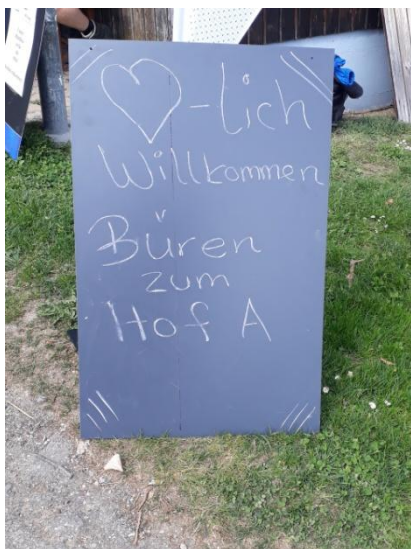 ♡-lich
Willkommen
Büren
zum
Hof A